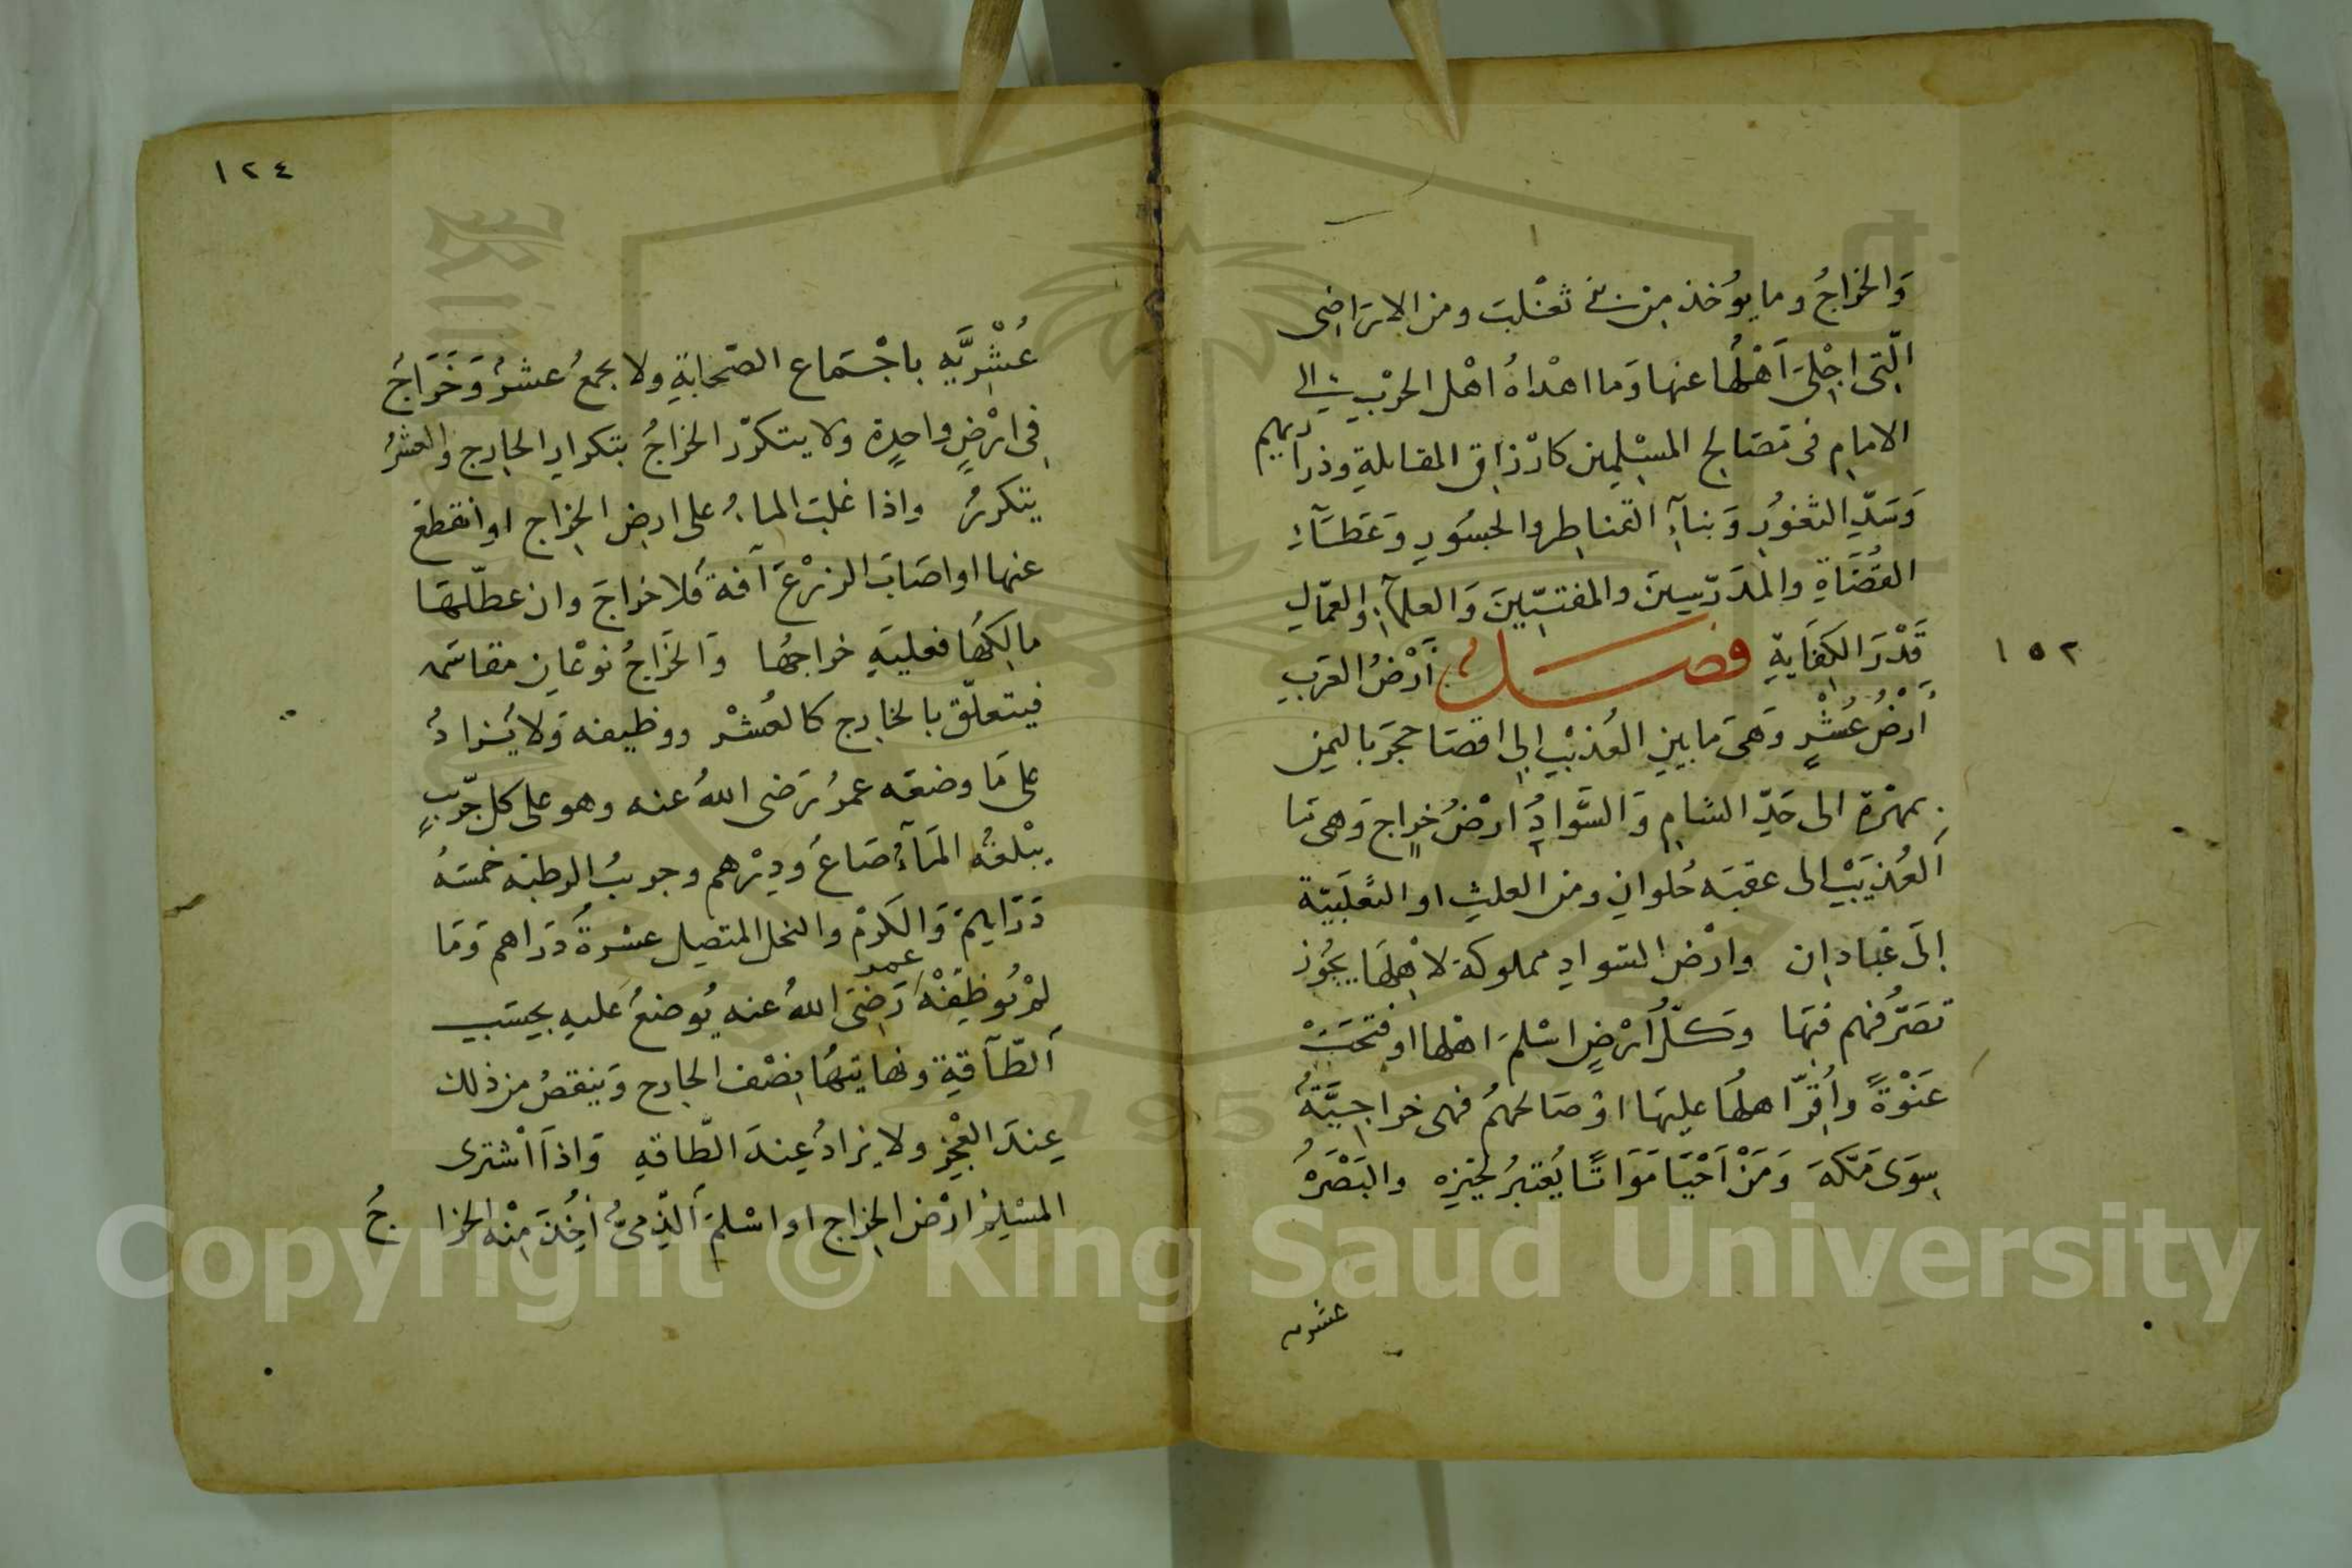 وَالخراجُ وما يوُخذ مِن بنى تغْلبَ ومن الاراضِى
الّتِى اجْلِىَ اَهْلُها عنها وَما اهْداهُ اهْل الحرْبِ الى
الامامِ فى مَصَالِح المسْلِمِين كارْزاقِ المقابلةِ وذراريهم
وَسَدِّ الثغورِ وَبناَءِ القناطِر والجسُورِ وَعَطَآءِ
القُضَاةِ والمُدَرّسِينَ والمفتيِّينَ وَالعلمآءِ والعمّالِ
قَدْرَ الكِفَايةِ فصل أَرْضُ العَربِ
١٥٢
أَرْضُ عُشْرٍ وَهىَ مَا بين العُذيْبِ الى اقصَا حجَرَ باليمن
بمهْرَة الى حَدِّ الشام وَ السَّوادُ ارْضُ خراجٍ وَهى مَا
اَلعُذيَبْ الى عقبَه حُلوانِ ومن العلثِ او الثَّعلَبيّة
اِلَى عبّادان وارْض السّوادِ مملوكة لاهْلِهَا يجُوز
تَصَرُّفُهم فيهَا وَكلّ اَرْضٍ اسْلمَ اهْلها او فتحَتْ
عَنْوةً واُقرّ اهلُها عليهَا اوْ صَالحهمُ فهى خراجِيَّةُ
سِوَى مَكّةَ وَمَنْ اَحْيَا مَوَاتًا يُعْتبرُ بحيّزِه والبَصْرَهُ
عشريه
١٢٤
عُشْرِيَّهِ باجْتماع الصّحابَةِ ولا يجمعُ عشرُ وَخَرَاجُ
فِى ارْضٍ واحدٍة ولا يتكرّر الخراجُ بتكرارِ الخارِج والعشرُ
يتكررُ واذا غلبَ الماءُ على ارض الخراج او انقطع
عنها او اصَابَ الزرْعَ آفة فَلا خراجَ وان عطّلهَا
مالِكُهَا فعليَهِ خراجُها وَالخَرَاجُ نوْعَانِ مقاسَمه
فيتعلّق بالخارِج كالعُشْر ووظيفه وَلا يُزادُ
على مَا وضعَه عمرُ رَضى اللهُ عنه وهو على كل جَرِيبٍ
يبْلغُه المَآءُ صَاعُ وَدِرْهم وجريبُ الرطبه خمسَهُ
دَرَاهِمَ وَالكَرْم والنخل المتصِل عشرةُ دَرَاهم وَمَا
لمْ يُوظِفْهُ عمر رَضِىَ اللهُ عنه يُوضعُ عَليهِ بحسَبِ
اَلطّاقَةِ ونهايتهُا نِصْف الخارِج وَينقصُ من ذلك
عِندَ العَجْزِ ولا يزادُ عِندَ الطّاقهِ وَاذَا اَشْترى
المسْلِمُ ارْض الخِراج او اسْلمَ اَلذِّمىُّ اُخِذَ مِنْه الخراجُ
Copyright © King Saud University